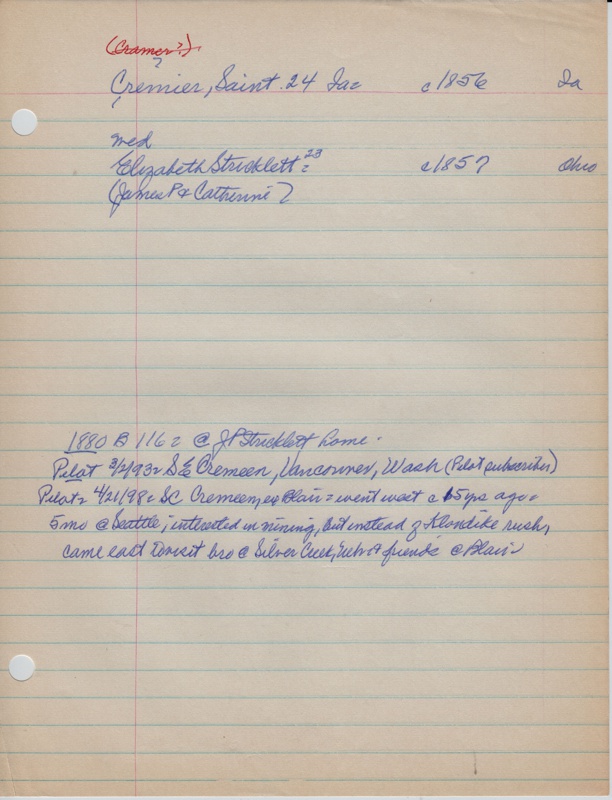 (Cramer?)
?
Cremier, Saint. 24 Ia= c1856 Ia
(
wed
Elizabeth Stricklett = 23 c1857 Ohio
(James P & Catherine)
1880 B 116 = @ J P Stricklett home.
Pilot 3/2/93= S E Cremeen, Vancouver, Wash (Pilot subscriber)
Pilot= 4/21/98= SC Cremeen, ex Blair = went west c 15 yrs ago =
5 mo @ Seattle; interested in mining, but instead of Klondike rush,
came east to visit bro @ Silver Creek, Neb & friends @ Blair=